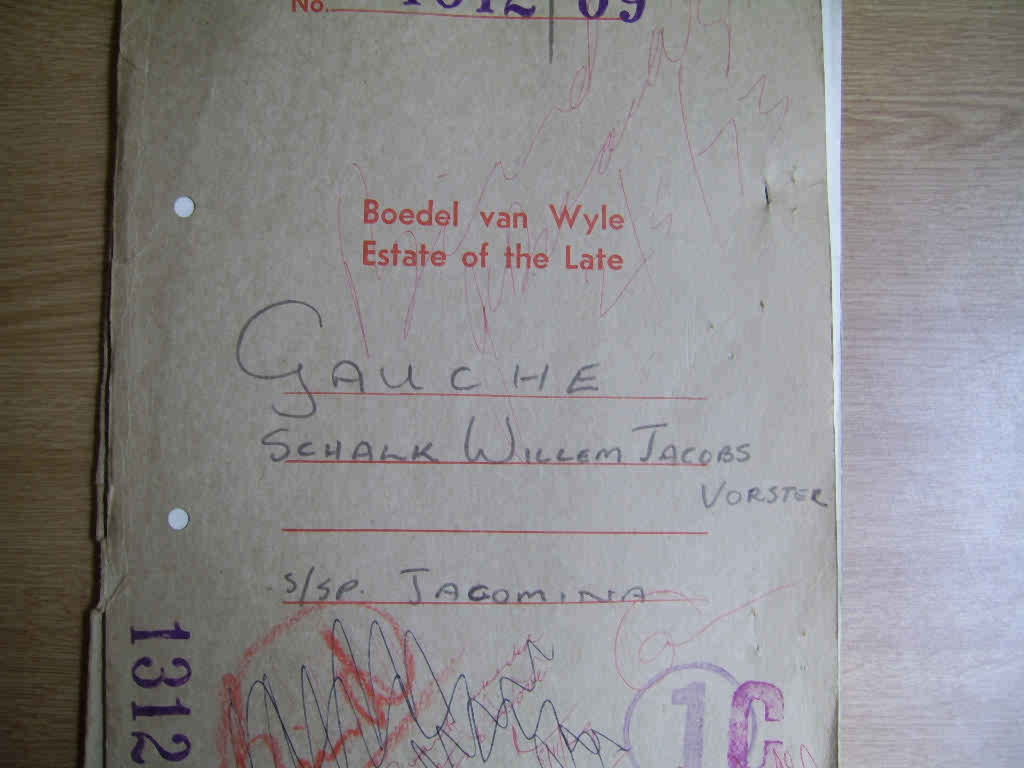 No.
Boedel van Wyle
Estate of the Late
GAUCHE
SCHALK WILLEM JACOBS
VORSTER
s/sp. JACOMINA
1312
1C